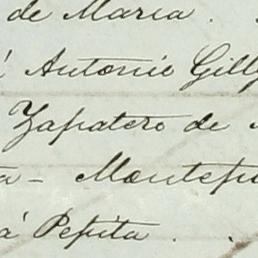 de Maria .
á Antonio Gilly
Zapatero de
a - Montepi
á Pepita .